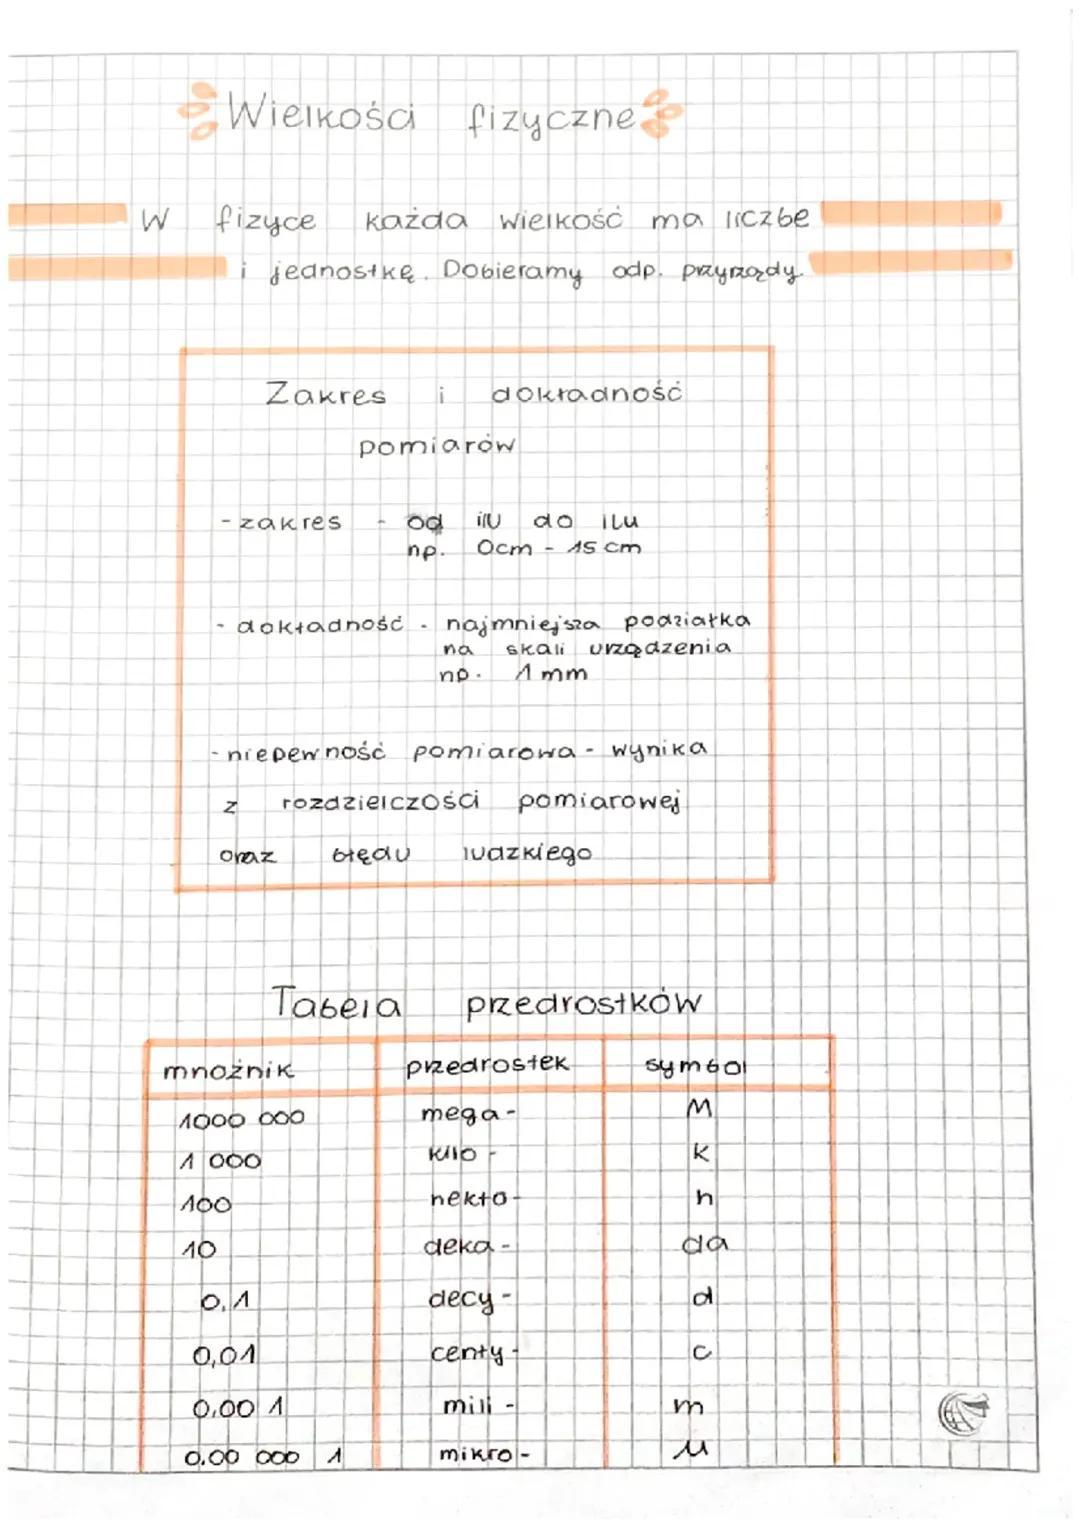 Wielkości fizyczne
W fizyce każda wielkość ma liczbe
i jednostkę. Dobieramy odp. przyrządy.
Zakres i dokładność
pomiarów
- zakres - od ilu do ilu
np. 0cm - 15 cm
- dokładność - najmniejsza podziałka
na skali urządzenia
np. 1 mm
- niepewność pomiarowa - wynika
z rozdzielczości pomiarowej
oraz błędu ludzkiego
Tabela przedrostków
mnożnik przedrostek symbol
1000 000 mega- M
1 000 kilo - k
100 hekto- h
10 deka - da
0,1 decy - d
0,01 centy- c
0,00 1 mili - m
0,00 000 1 mikro - μ